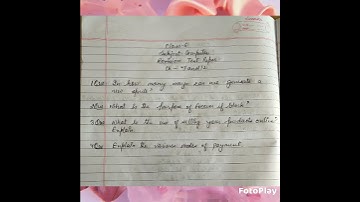 Class-6
Computer
Revision Test Paper
Ch - 7 and 12
1 Qus In how many ways can we generate a
new sprite?
2 Qus What is the purpose of broom of block?
3 Qus What is the use of using your products online?
Explain
4 Qus Explain the various modes of payment.
FotoPlay